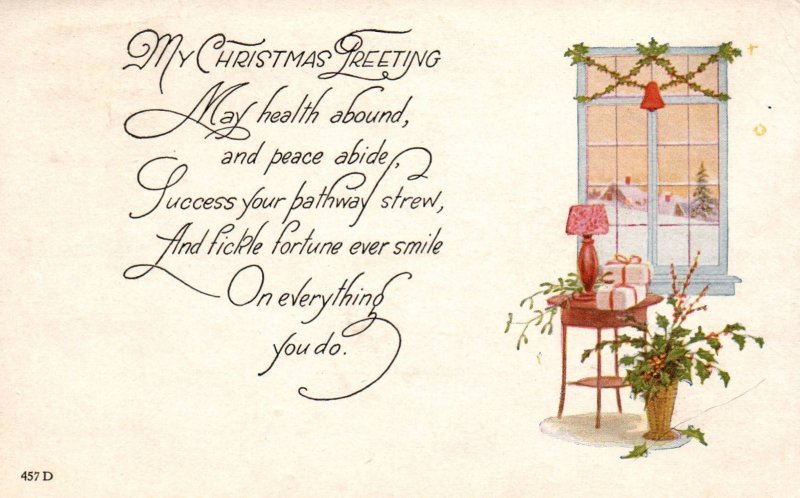 My Christmas Greeting
May health abound,
and peace abide,
Success your pathway strew,
And fickle fortune ever smile
On everything
you do.
457 D